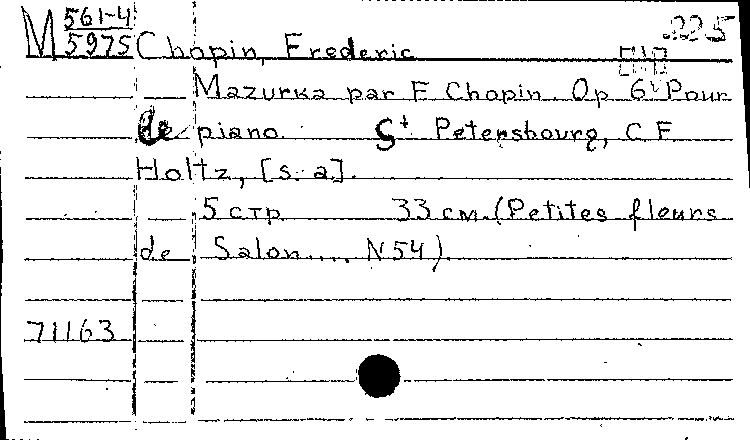 M 561-4/5975 Chopin, Frederic 225
Mazurka par F Chopin. Op 6 Pour
de piano. St Petersbourg, C F
Holtz, [s. a].
5 стр 33 см. (Petites fleurs
de Salon.... N54).
71163